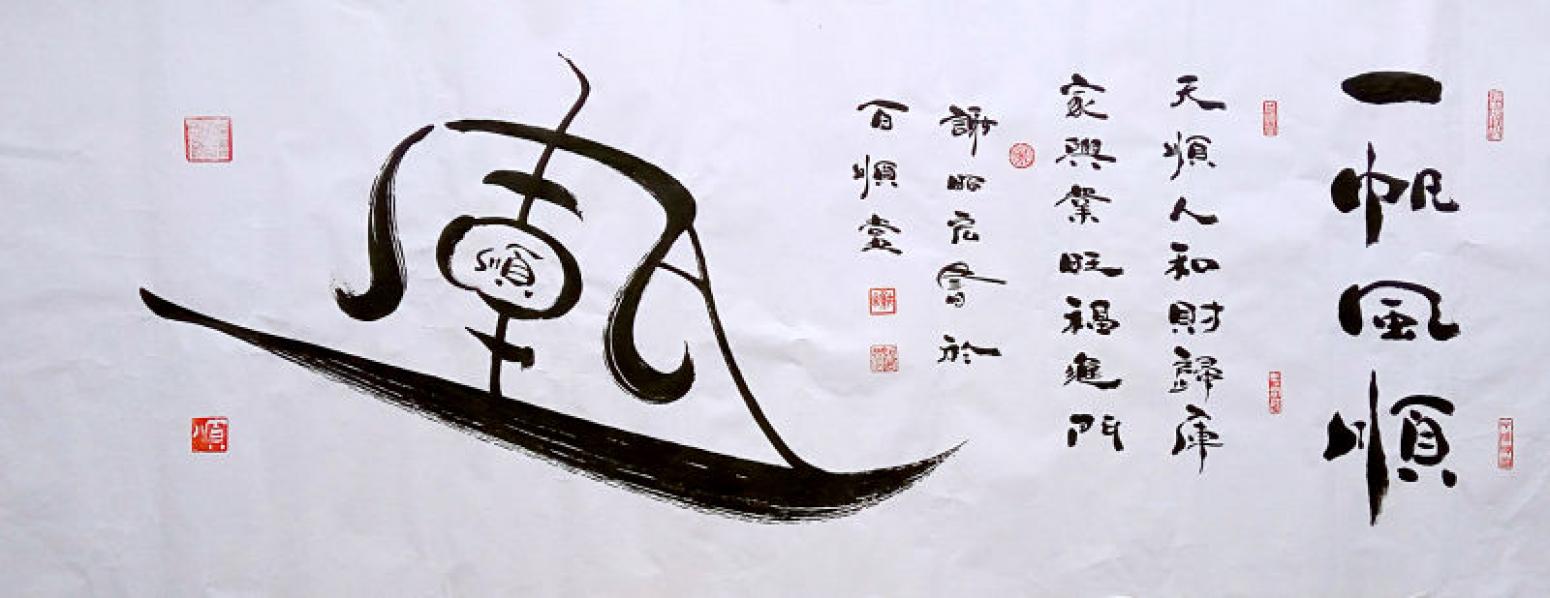 一帆風順
天順人和財歸庫
家興業旺福進門
謝昭宏書於
百順堂
風
順
順